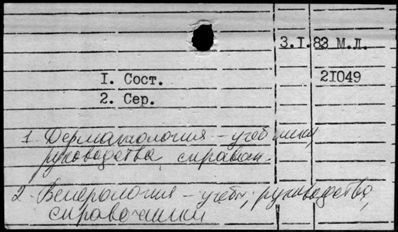 3.I.83 М.Л.
I. Сост. 21049
2. Сер.
1. Дерматология – учебники,
руководства, справоч.
2. Венерология – учебн., руководства,
справочники